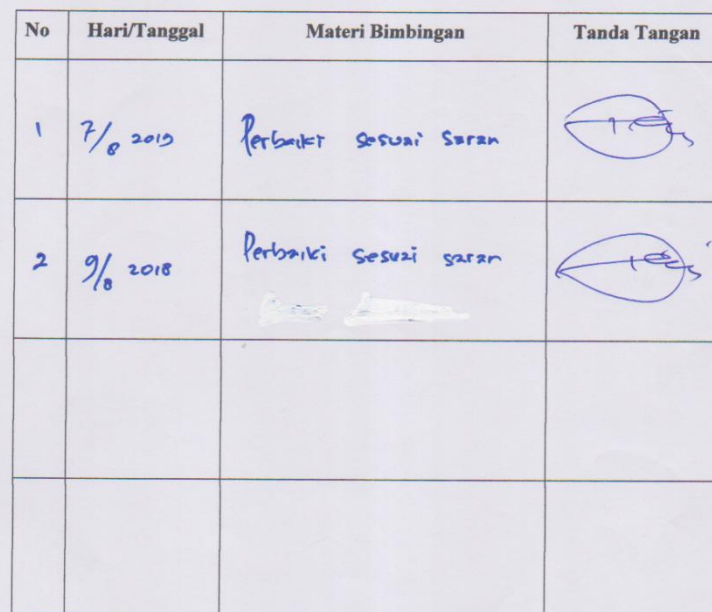 No Hari/Tanggal Materi Bimbingan Tanda Tangan
1 7/8 2019 Perbaiki sesuai saran
2 9/8 2018 Perbaiki sesuai saran